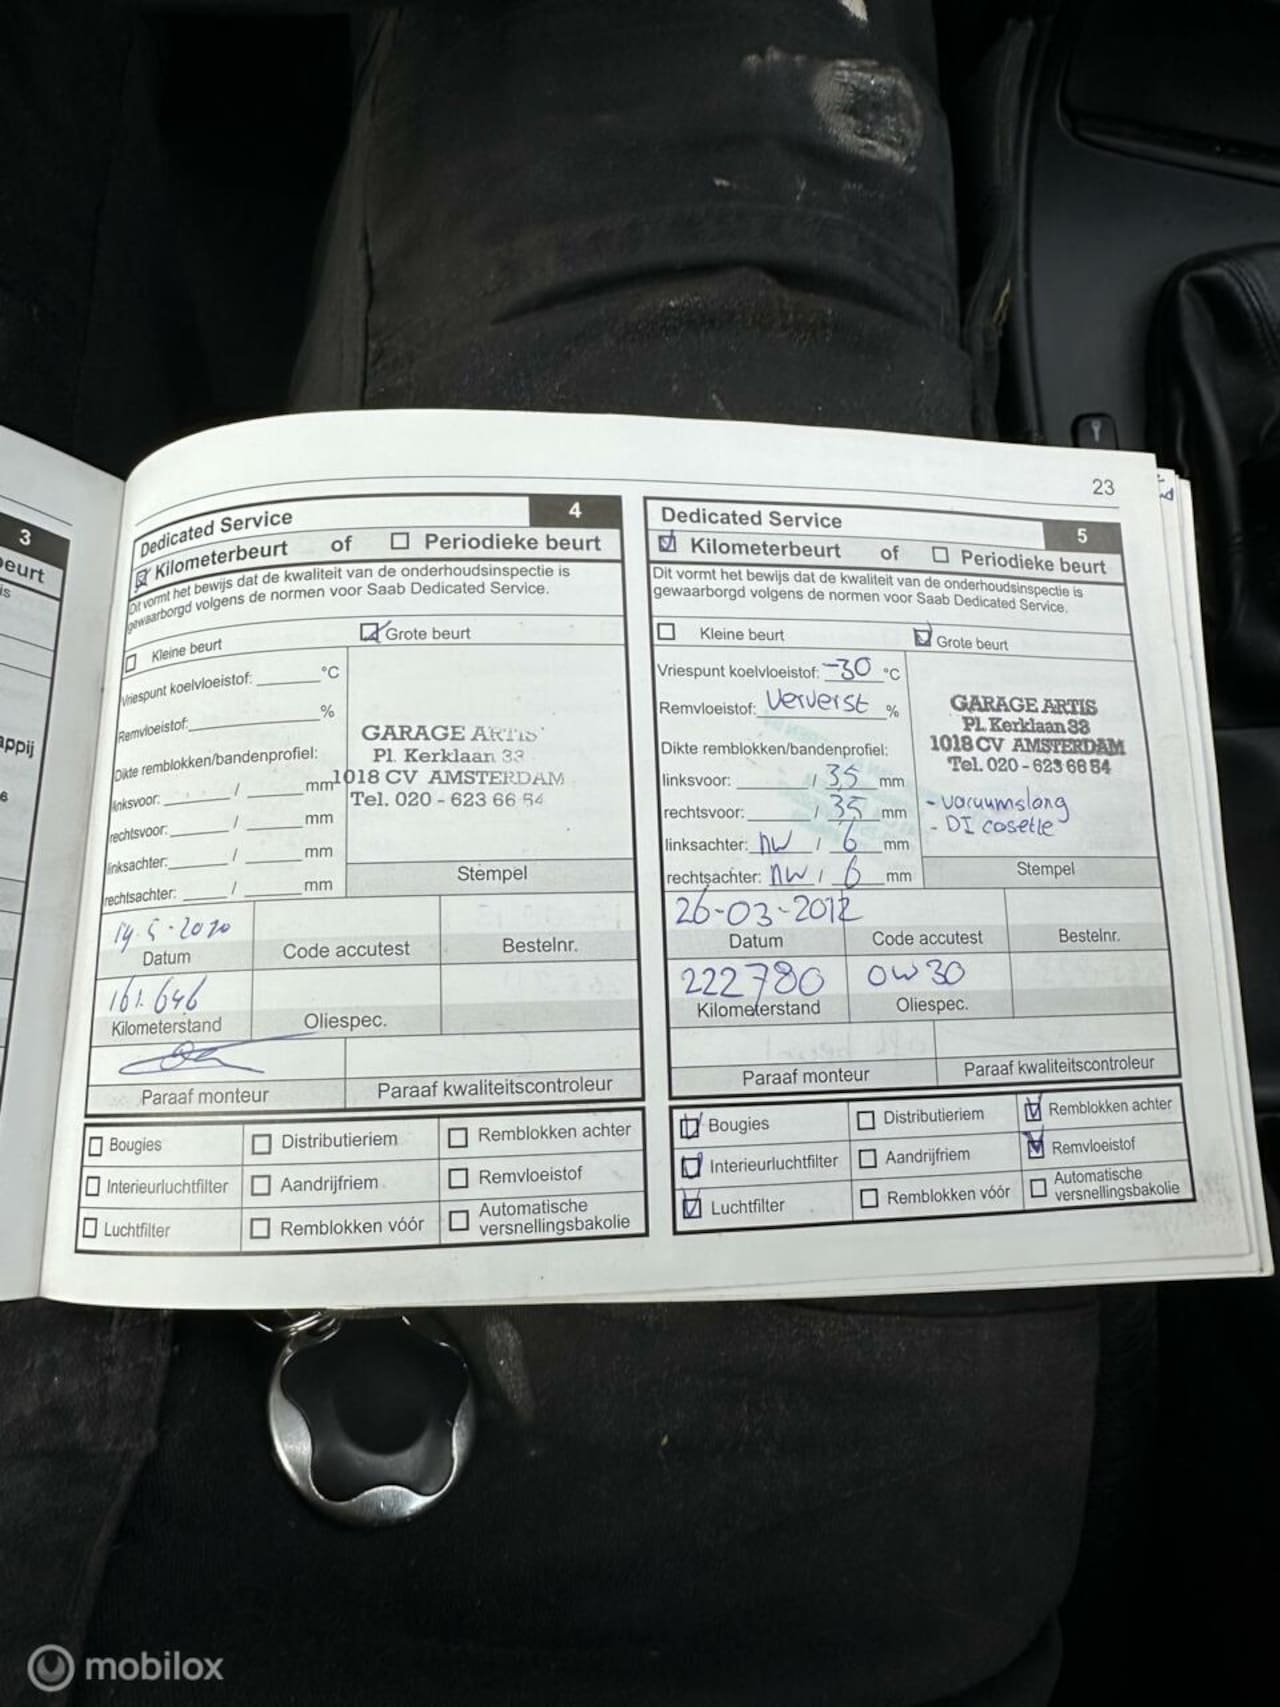 3
eurt
is
appij
6
23
Dedicated Service
4
Kilometerbeurt of Periodieke beurt
Dit vormt het bewijs dat de kwaliteit van de onderhoudsinspectie is
gewaarborgd volgens de normen voor Saab Dedicated Service.
Kleine beurt Grote beurt
Vriespunt koelvloeistof: °C
Remvloeistof: %
Dikte remblokken/bandenprofiel:
linksvoor: / mm
rechtsvoor: / mm
linksachter: / mm
rechtsachter: / mm
GARAGE ARTIS
Pl. Kerklaan 33
1018 CV AMSTERDAM
Tel. 020 - 623 66 54
Stempel
19.5.2010
Datum Code accutest Bestelnr.
161.646
Kilometerstand Oliespec.
Paraaf monteur Paraaf kwaliteitscontroleur
Bougies Distributieriem Remblokken achter
Interieurluchtfilter Aandrijfriem Remvloeistof
Luchtfilter Remblokken vóór Automatische
versnellingsbakolie
Dedicated Service
5
Kilometerbeurt of Periodieke beurt
Dit vormt het bewijs dat de kwaliteit van de onderhoudsinspectie is
gewaarborgd volgens de normen voor Saab Dedicated Service.
Kleine beurt Grote beurt
Vriespunt koelvloeistof: -30 °C
Remvloeistof: ververst %
Dikte remblokken/bandenprofiel:
linksvoor: / 3,5 mm
rechtsvoor: / 35 mm
linksachter: nw / 6 mm
rechtsachter: nw / 6 mm
GARAGE ARTIS
Pl. Kerklaan 33
1018 CV AMSTERDAM
Tel. 020 - 623 66 54
- vacuumslang
- DI casette
Stempel
26-03-2012
Datum Code accutest Bestelnr.
222780 OW30
Kilometerstand Oliespec.
Paraaf monteur Paraaf kwaliteitscontroleur
Bougies Distributieriem Remblokken achter
Interieurluchtfilter Aandrijfriem Remvloeistof
Luchtfilter Remblokken vóór Automatische
versnellingsbakolie
mobilox